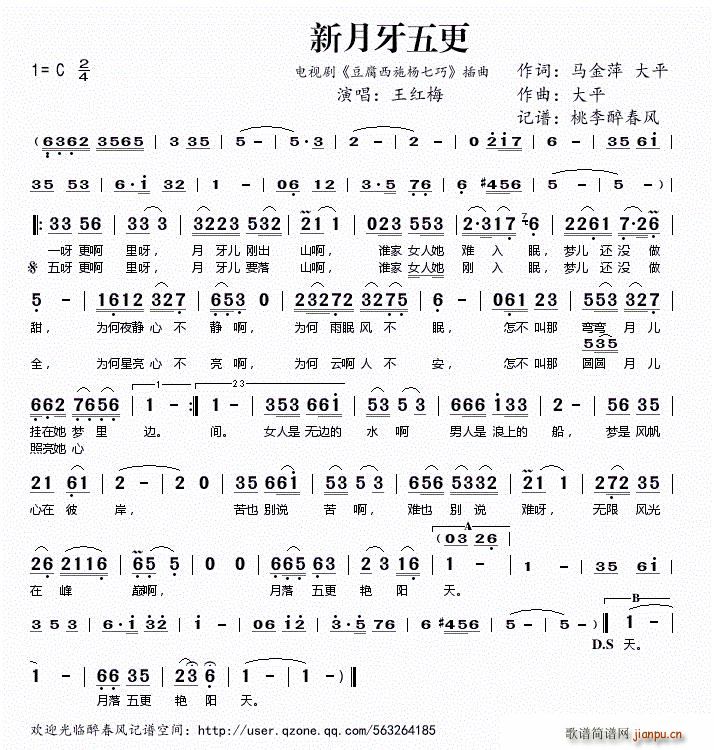 新月牙五更
1= C 2/4
电视剧《豆腐西施杨七巧》插曲 作词：马金萍 大平
演唱：王红梅 作曲：大平
记谱：桃李醉春风
( 6362 3565 | 3· 5 | 5 - | 5· 3 | 2 - | 2 - | 0 2i7 | 35 6i |
35 53 | 6·i 32 | 1 - | 06 12 | 3·5 76 | 6 #456 | 5 - | 5 - ) |
‖: 33 56 | 33 3 | 3223 532 | 21 1 | 023 553 | 2·317 6 | 2261 7·26 |
一呀 更啊 里呀， 月 牙儿 刚出 山啊， 谁家 女人她 难 入 眠， 梦儿 还 没 做
𝄋 五呀 更啊 里呀， 月 牙儿 要落 山啊， 谁家 女人她 刚 入 眠， 梦儿 还 没 做
5 - | 1612 327 | 653 0 | 23272 3275 | 6 - | 061 23 | 553 353 |
甜， 为何夜静 心 不 静 啊， 为何 雨眠 风 不 眠， 怎不 叫那 弯弯 月 儿
535
全， 为何星亮 心 不 亮 啊， 为何 云啊 人 不 安， 怎不 叫那 圆圆 月 儿
662 7656 | 1 - :‖ 1 - | 353 66i | 53 5 3 | 666 i33 | 5 - | 56 35 |
1 23
挂在她 梦 里 边。 间。 女人是 无边的 水 啊 男人是 浪上的 船， 梦是 风帆
照亮她 心
21 61 | 2 - | 2 0 | 353 661 | 2 3 5 | 656 5332 | 21 1 | 272 35 |
心在 彼 岸， 苦也 别说 苦 啊， 难也 别 说 难呀， 无限 风光
A
( 03 26
26 2116 | 65 5 | 0 0 | 665 63 | 23 16 | 1 - | 1· 5 | 35 6i |
在 峰 巅啊， 月落 五更 艳 阳 天。
3 53 | 6·i 32 | 1 - | 06 i2 | 3·5 76 | 6 #456 | 5 - | 5 - ) | 1 - |
B
D.S 天。
1 - | 66 35 | 23 6 | 1 - | 1 - ) ‖
月落 五更 艳 阳 天。
欢迎光临醉春风记谱空间：http://user.qzone.qq.com/563264185
歌谱简谱网
jianpu.cn